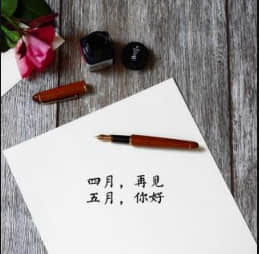 四月，再見
五月，你好